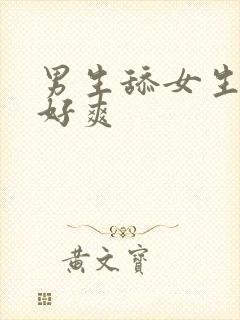 男生舔女生
好爽
黄文宝